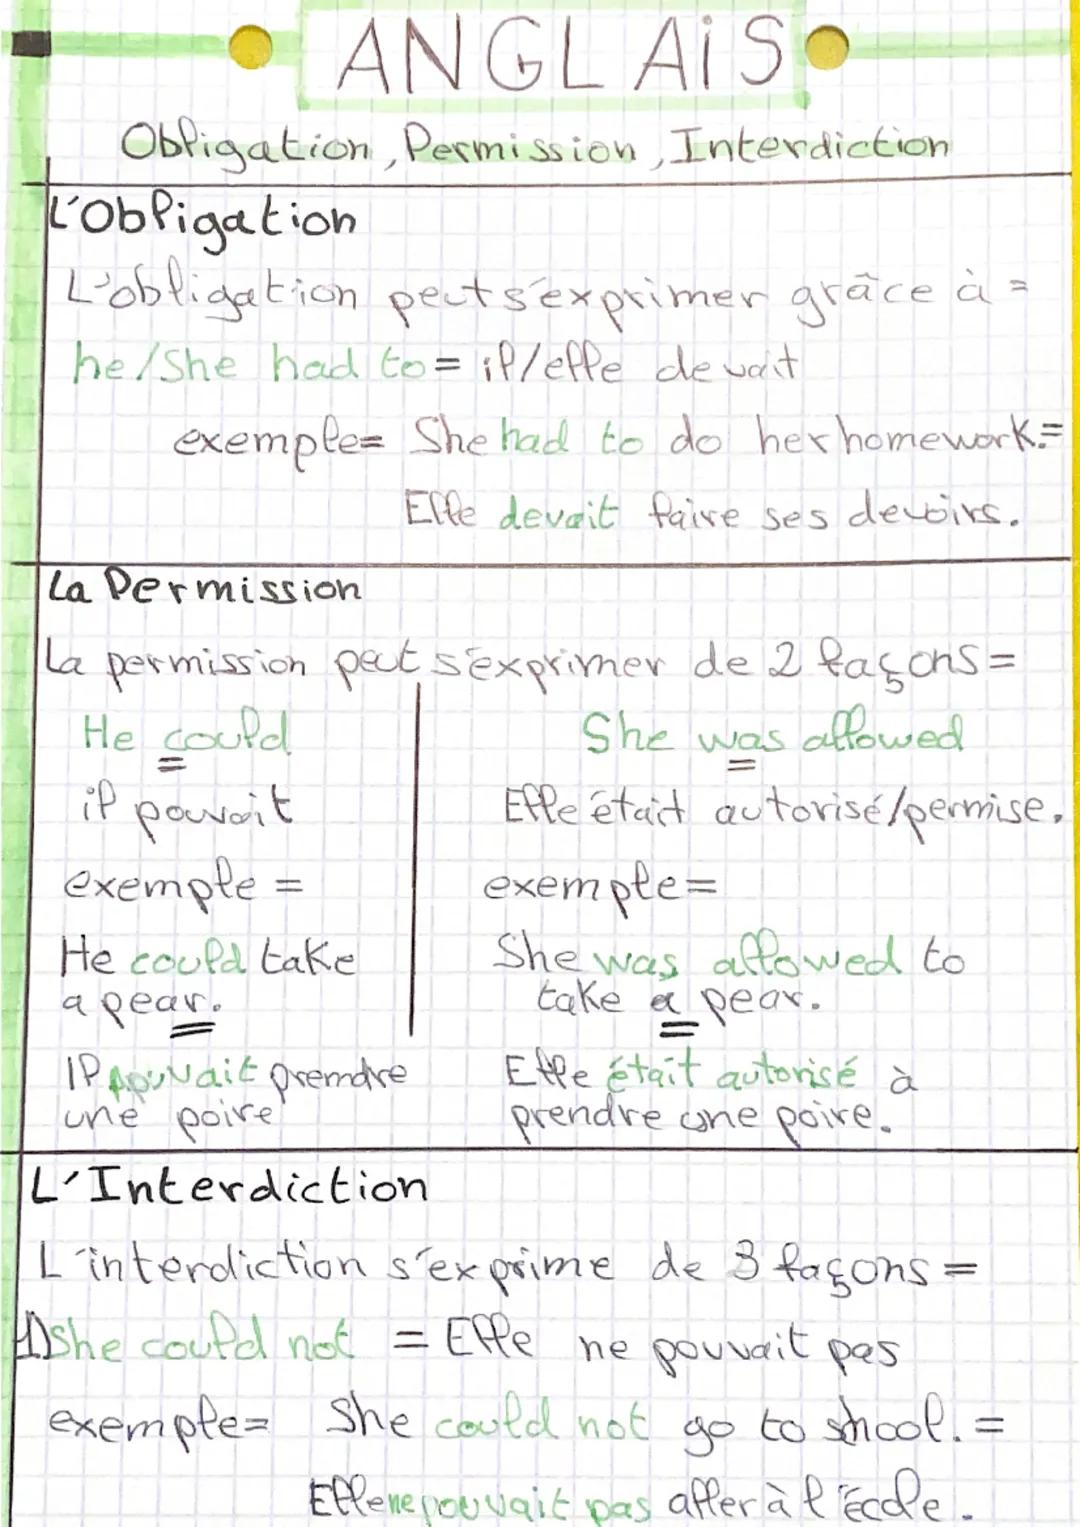 ANGLAiS
Obligation, Permission, Interdiction
L'Obligation
L'obligation peut s'exprimer grâce à =
he/She had to = il/elle devait
exemple= She had to do her homework.=
Elle devait faire ses devoirs.
La Permission
La permission peut s'exprimer de 2 façons =
He could
She was allowed
il pouvait
Elle était autorisé/permise.
exemple =
exemple=
He could take
a pear.
She was allowed to
take a pear.
Il pouvait prendre
une poire
Elle était autorisé à
prendre une poire.
L'Interdiction
L'interdiction s'exprime de 3 façons =
1) She could not = Elle ne pouvait pas
exemple= She could not go to shool. =
Elle ne pouvait pas aller à l'école.